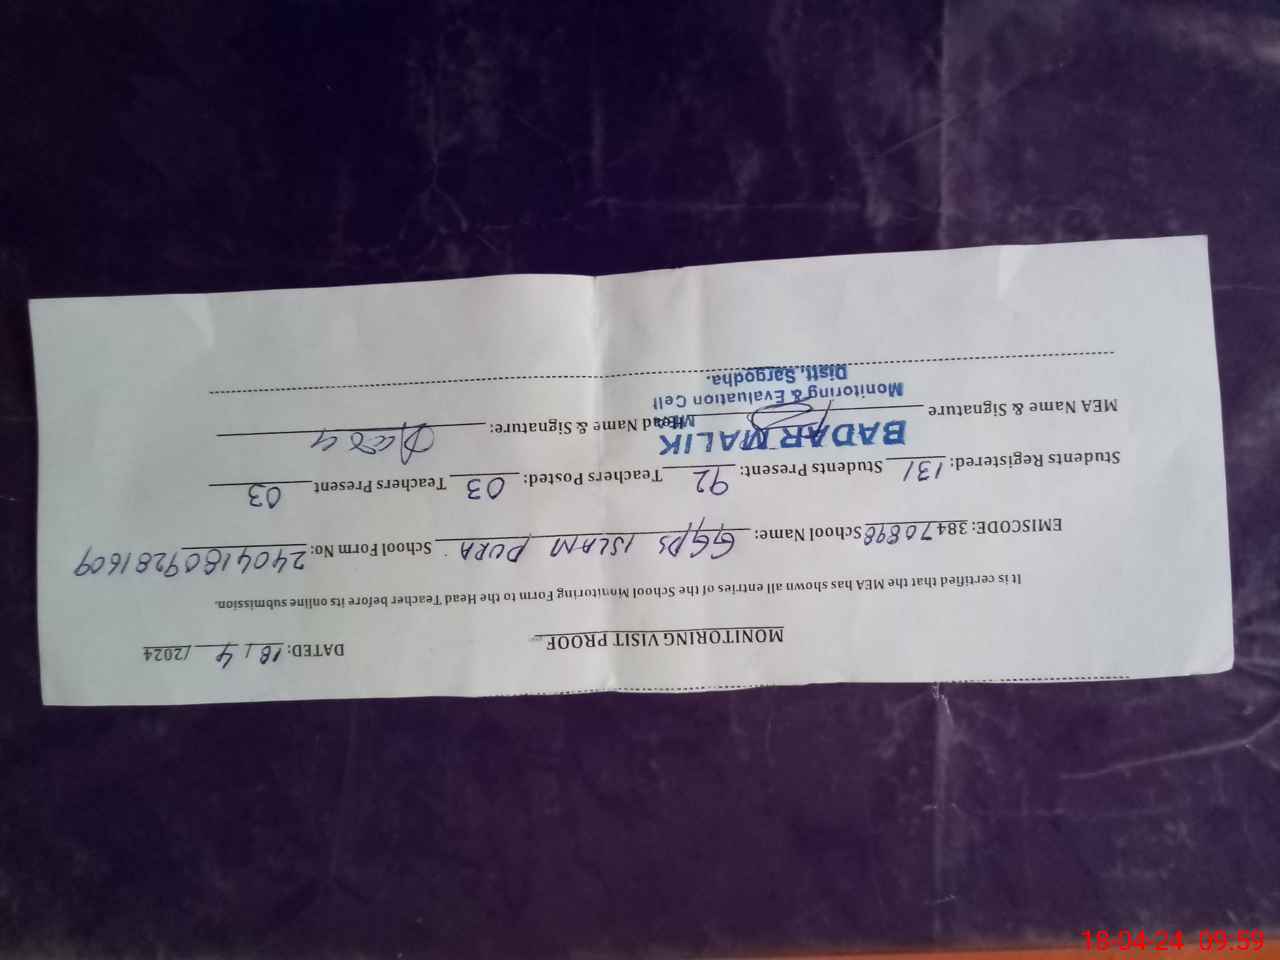 MONITORING VISIT PROOF
DATED: 18/4/2024
It is certified that the MEA has shown all entries of the School Monitoring Form to the Head Teacher before its online submission.
EMISCODE: 38470898 School Name: GGPS ISLAM PURA School Form No: 24041809281609
Students Registered: 131 Students Present: 92 Teachers Posted: 03 Teachers Present 03
MEA Name & Signature Head Name & Signature:
BADAR MALIK
MEA
Monitoring & Evaluation Cell
Distt, Sargodha.
18-04-24 09:59